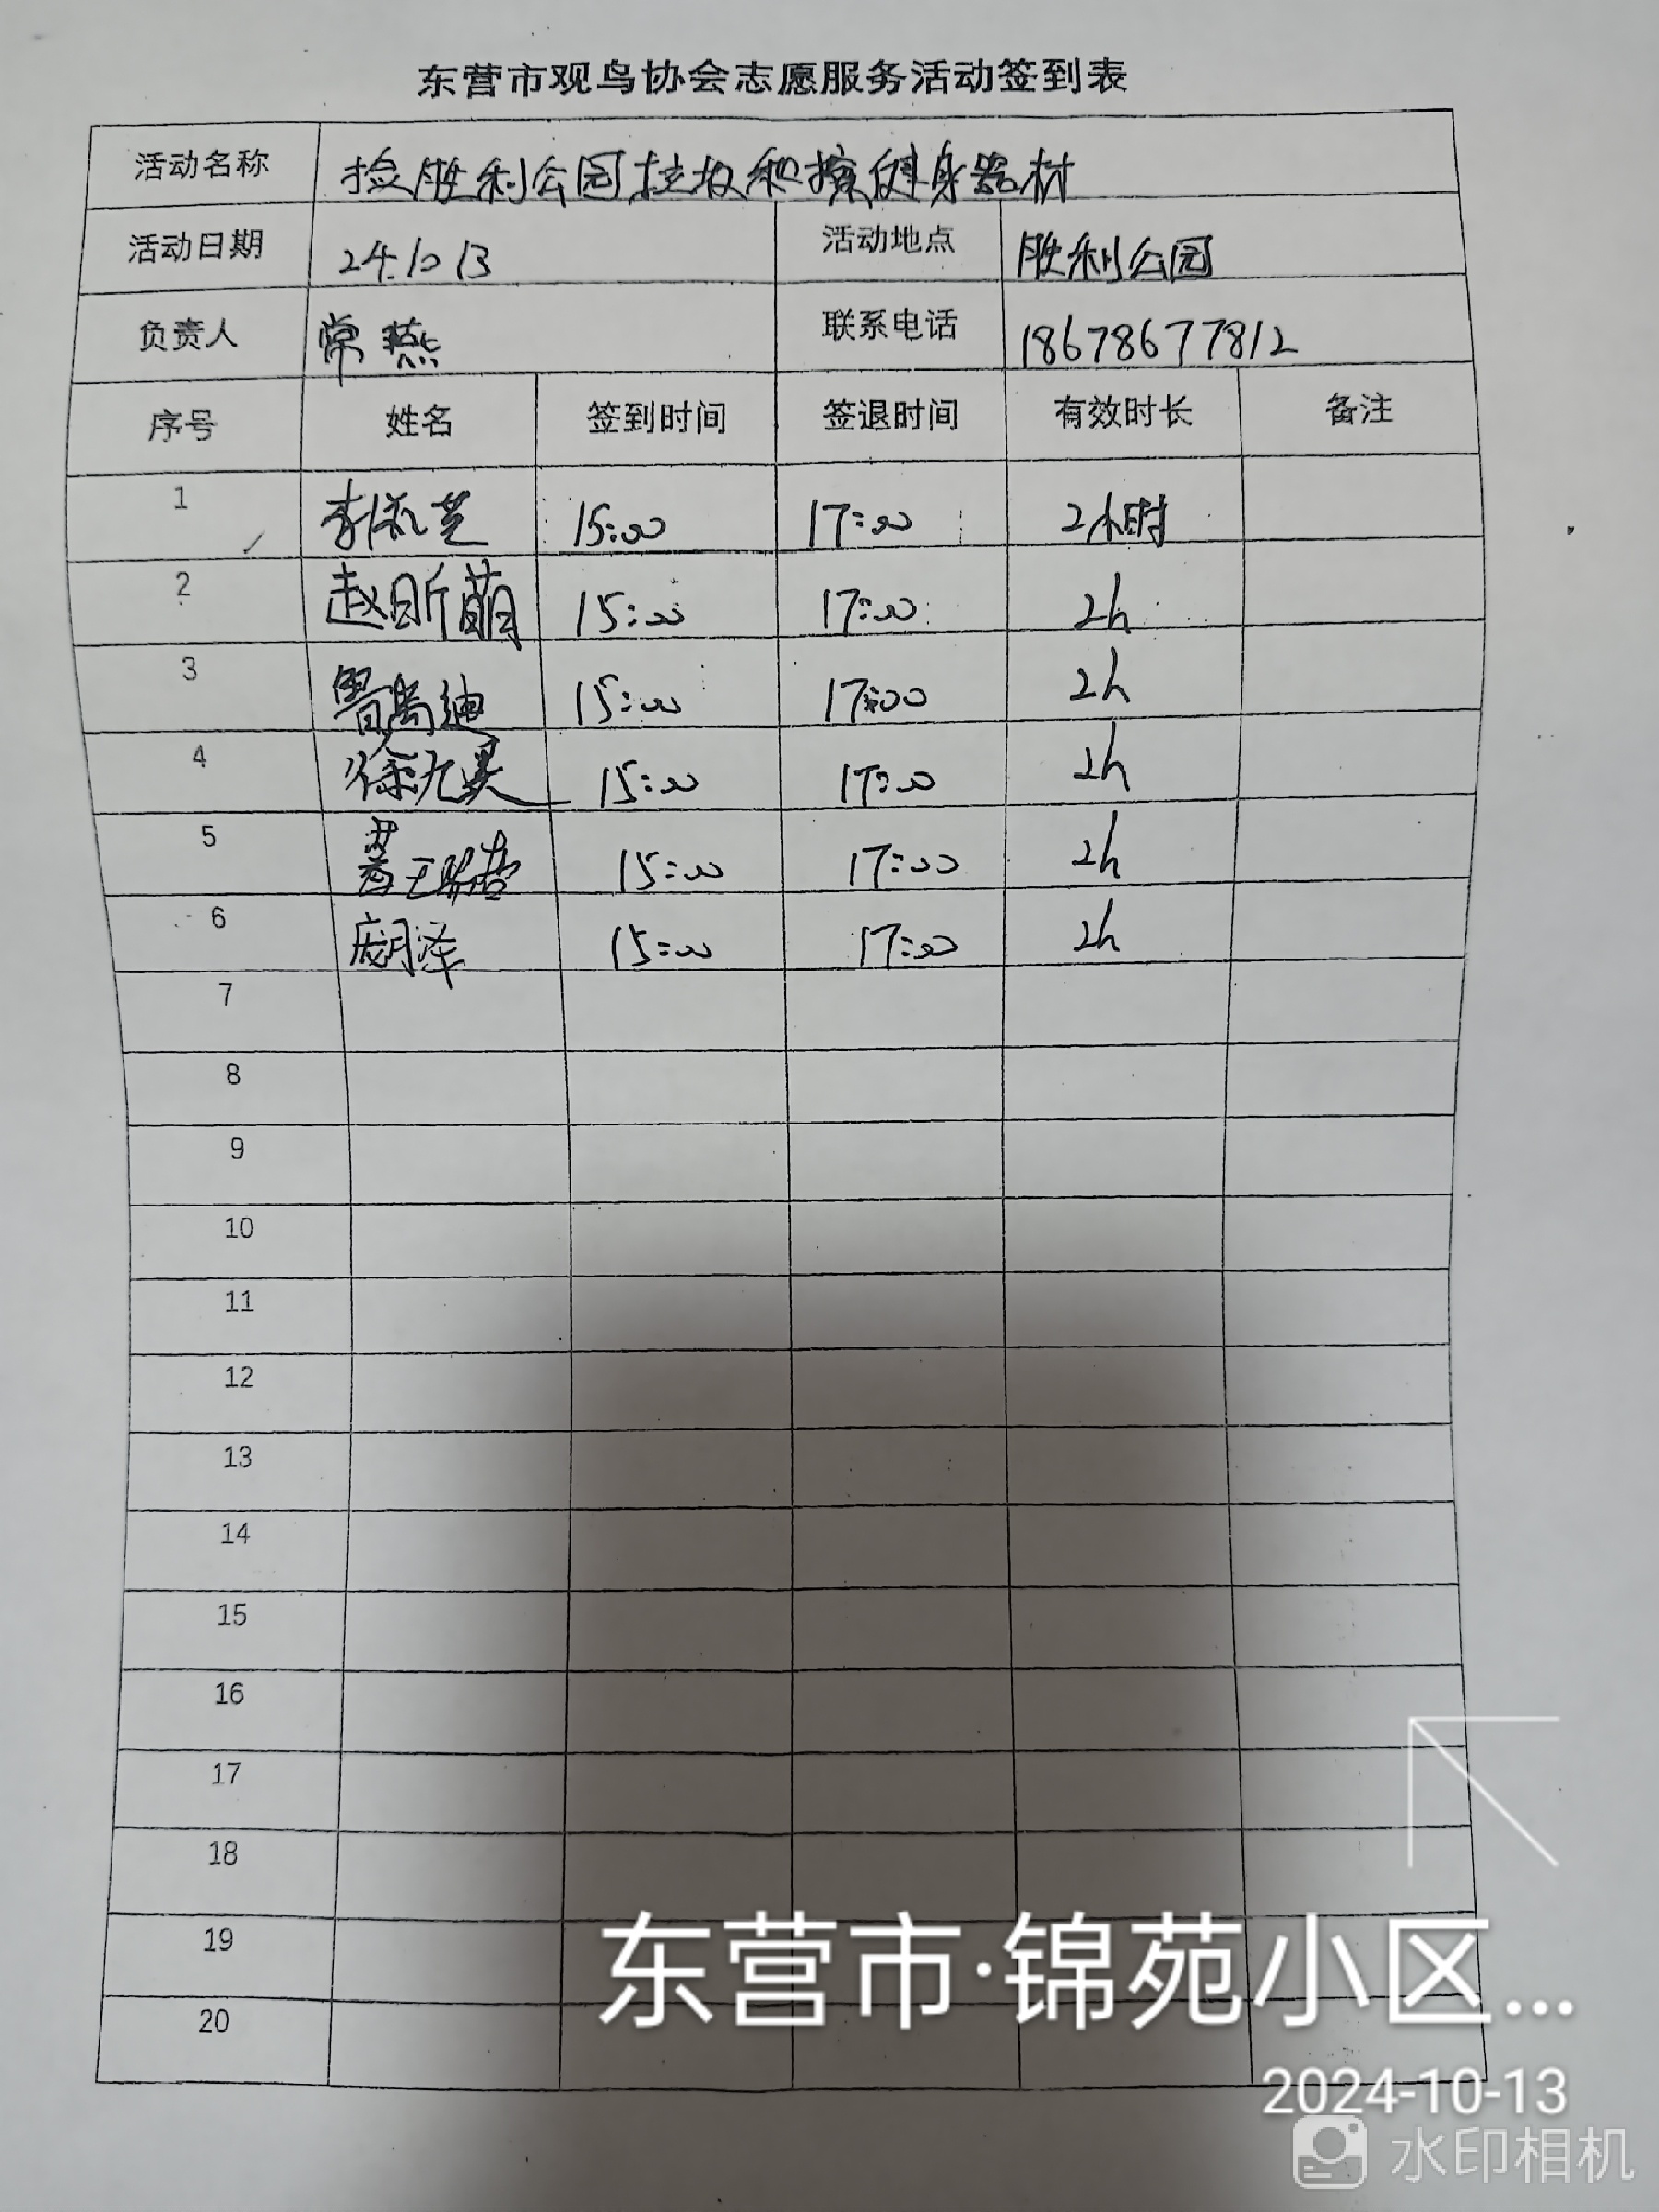 东营市观鸟协会志愿服务活动签到表
活动名称 捡胜利公园垃圾和擦健身器材
活动日期 24.10 13 活动地点 胜利公园
负责人 常燕 联系电话 18678677812
序号 姓名 签到时间 签退时间 有效时长 备注
1 李淑芝 15:00 17:00 2小时
2 赵昕萌 15:00 17:00 2h
3 鲁尚迪 15:00 17:00 2h
4 徐九昊 15:00 17:00 2h
5 15:00 17:00 2h
6 泽 15:00 17:00 2h
7
8
9
10
11
12
13
14
15
16
17
18
19
20
东营市·锦苑小区...
2024-10-13
水印相机